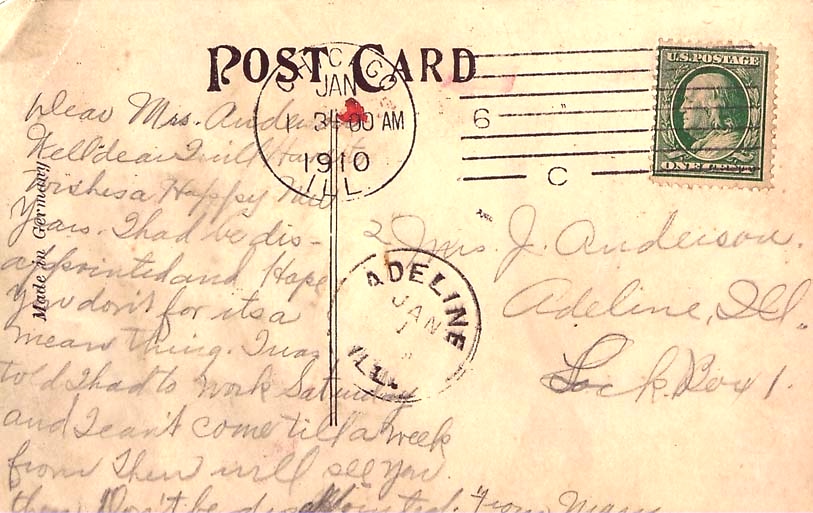 POST CARD
CHICAGO
JAN
1 3-00 AM
1910
ILL
6
C
U.S. POSTAGE
ONE CENT
Made in Germany
Dear Mrs. Anderson
Well dear I will have to
wish is a Happy New
Years. I had be dis-
appointed and Hope
you don't for its a
mean thing. I was
told I had to work Saturday
and I can't come till a week
from then will see you
then Don't be disappointed. From Mary
Mrs. J. Anderson.
Adeline, Ill.
Lock Box 1.
ADELINE
JAN
1
ILL.